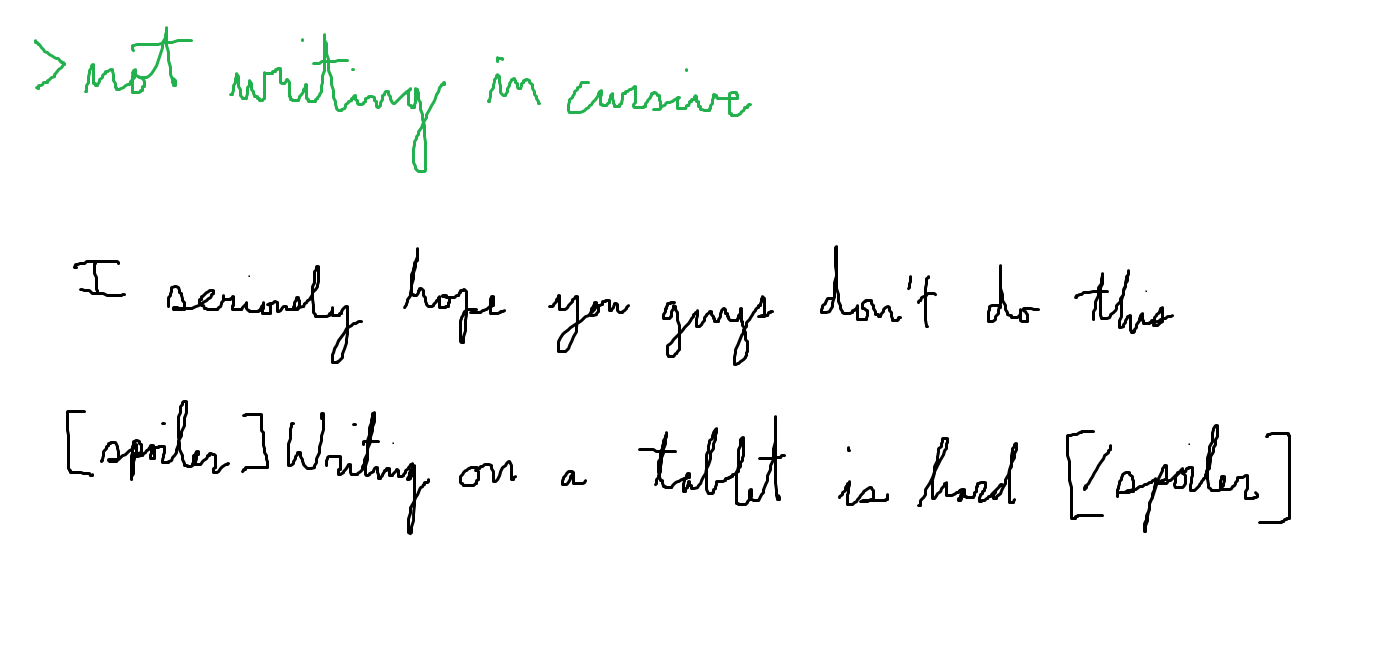 >not writing in cursive
I seriously hope you guys don't do this
[spoiler]Writing on a tablet is hard [/spoiler]